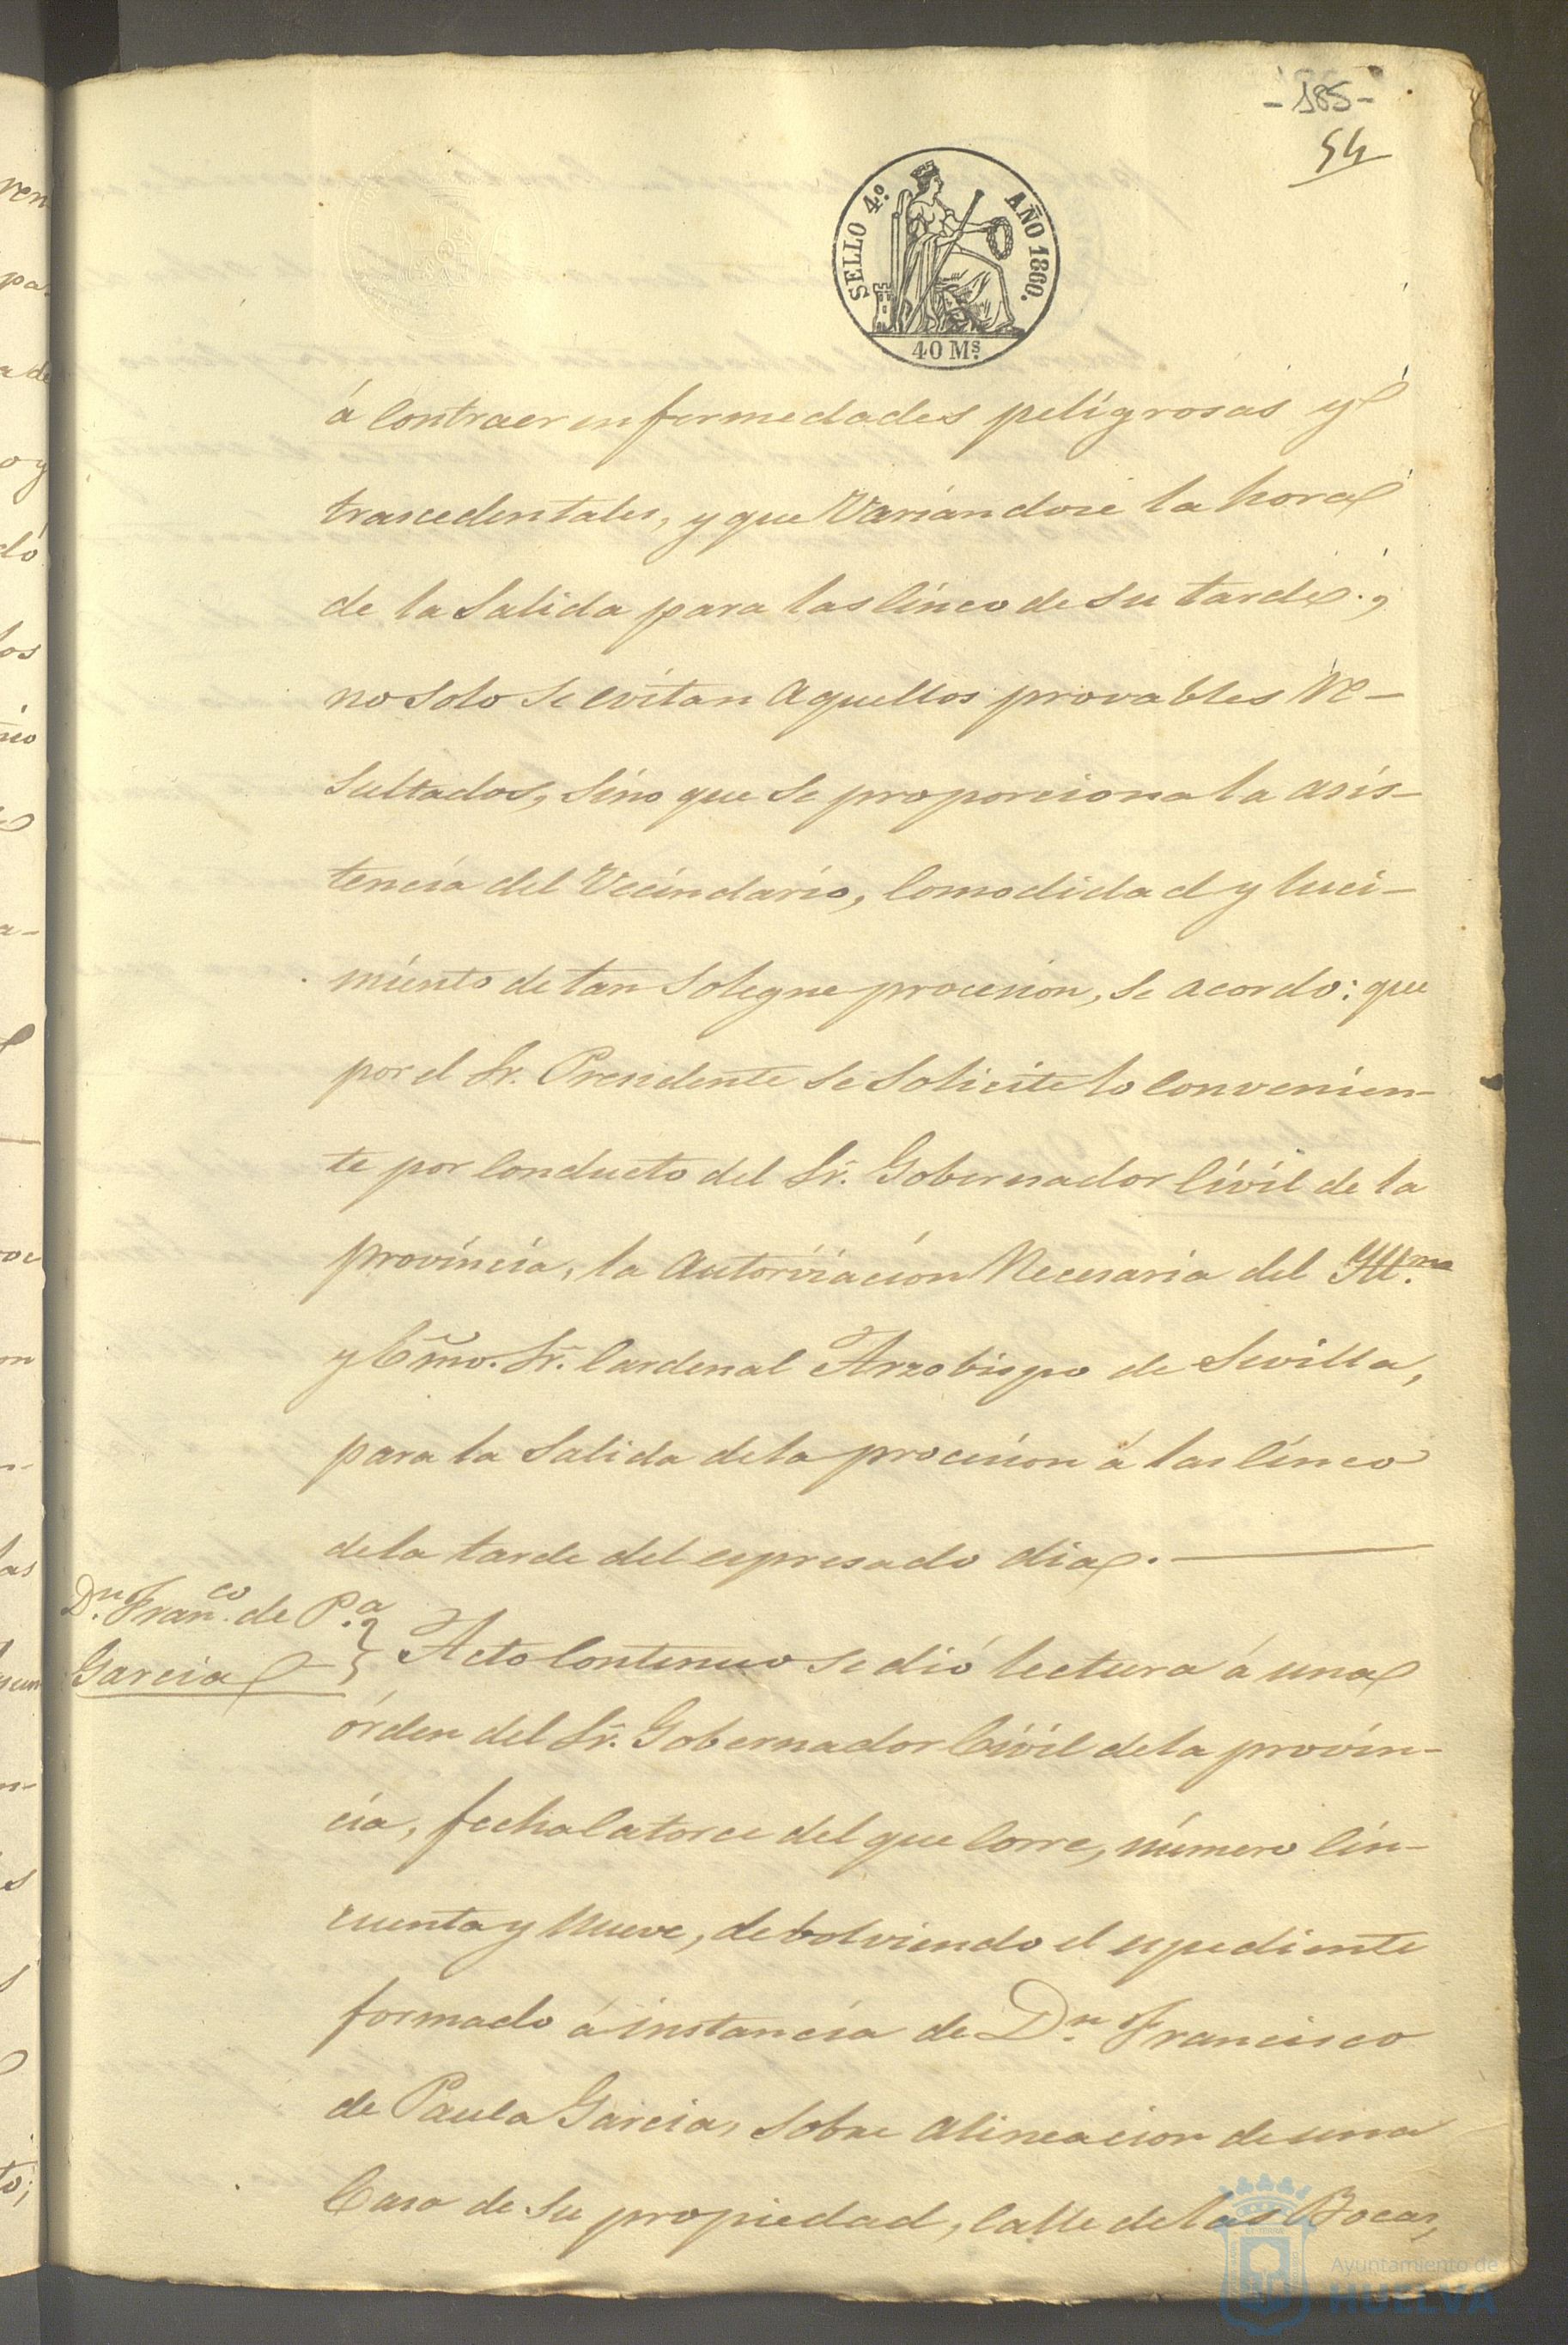 -185-
54
SELLO 4.º AÑO 1860.
40 Ms.
á contraer enfermedades peligrosas y
trascedentales, y que variandose la hora
de la salida para las cinco de su tarde.,
no solo se evitan aquellos provables re-
sultados, sino que se proporciona la asis-
tencia del Vecindario, comodidad y luci-
miento de tan solegne procesion, se acordo: que
por el Sr. Presidente se solicite lo convenien-
te por conducto del Sr. Gobernador Civil de la
provincia, la autorizacion necesaria del Ill.mo
y Emo. Sr. Cardenal Arzobispo de Sevilla,
para la salida de la procesion á las cinco
de la tarde del espresado dia.
Dn. Franco. de P.a
Garcia
Acto continuo se dió lectura á una
órden del Sr. Gobernador Civil de la provin-
cia, fecha catorce del que corre, número cin-
cuenta y nueve, debolviendo el espediente
formado á instancia de Dn. Francisco
de Paula Garcia, sobre alineacion de una
casa de su propiedad, calle de las Bocas,
Ayuntamiento de
HUELVA